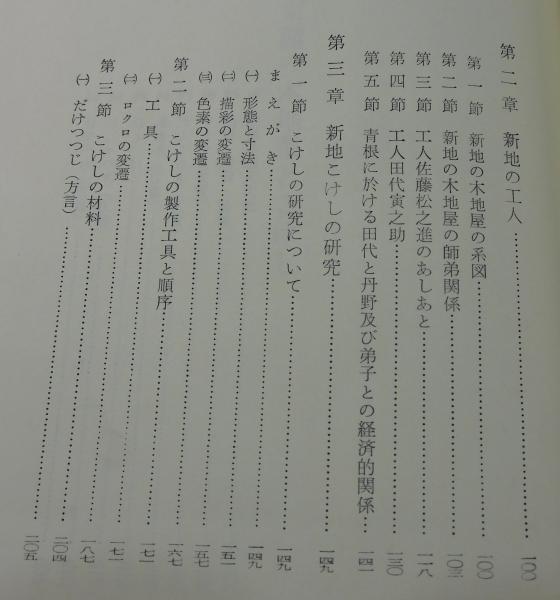 第二章　新地の工人……一〇〇
第一節　新地の木地屋の系図……一〇〇
第二節　新地の木地屋の師弟関係……一〇三
第三節　工人佐藤松之進のあしあと……一一八
第四節　工人田代寅之助……一三〇
第五節　青根に於ける田代と丹野及び弟子との経済的関係……一四一
第三章　新地こけしの研究……一四九
第一節　こけしの研究について……一四九
まえがき……一四九
㈠　形態と寸法……一五一
㈡　描彩の変遷……一五七
㈢　色素の変遷……一六七
第二節　こけしの製作工具と順序……一七一
㈠　工具……一七一
㈡　ロクロの変遷……一八七
第三節　こけしの材料……二〇四
㈠　だけつつじ（方言）……二〇五